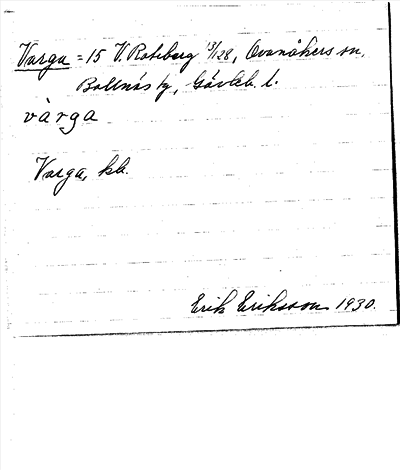 Varga = 15 V. Roteberg 3/128, Ovanåkers sn,
Bollnäs tg, Gävleb. l.
vàrga
Varga, kb.
Erik Eriksson 1930.